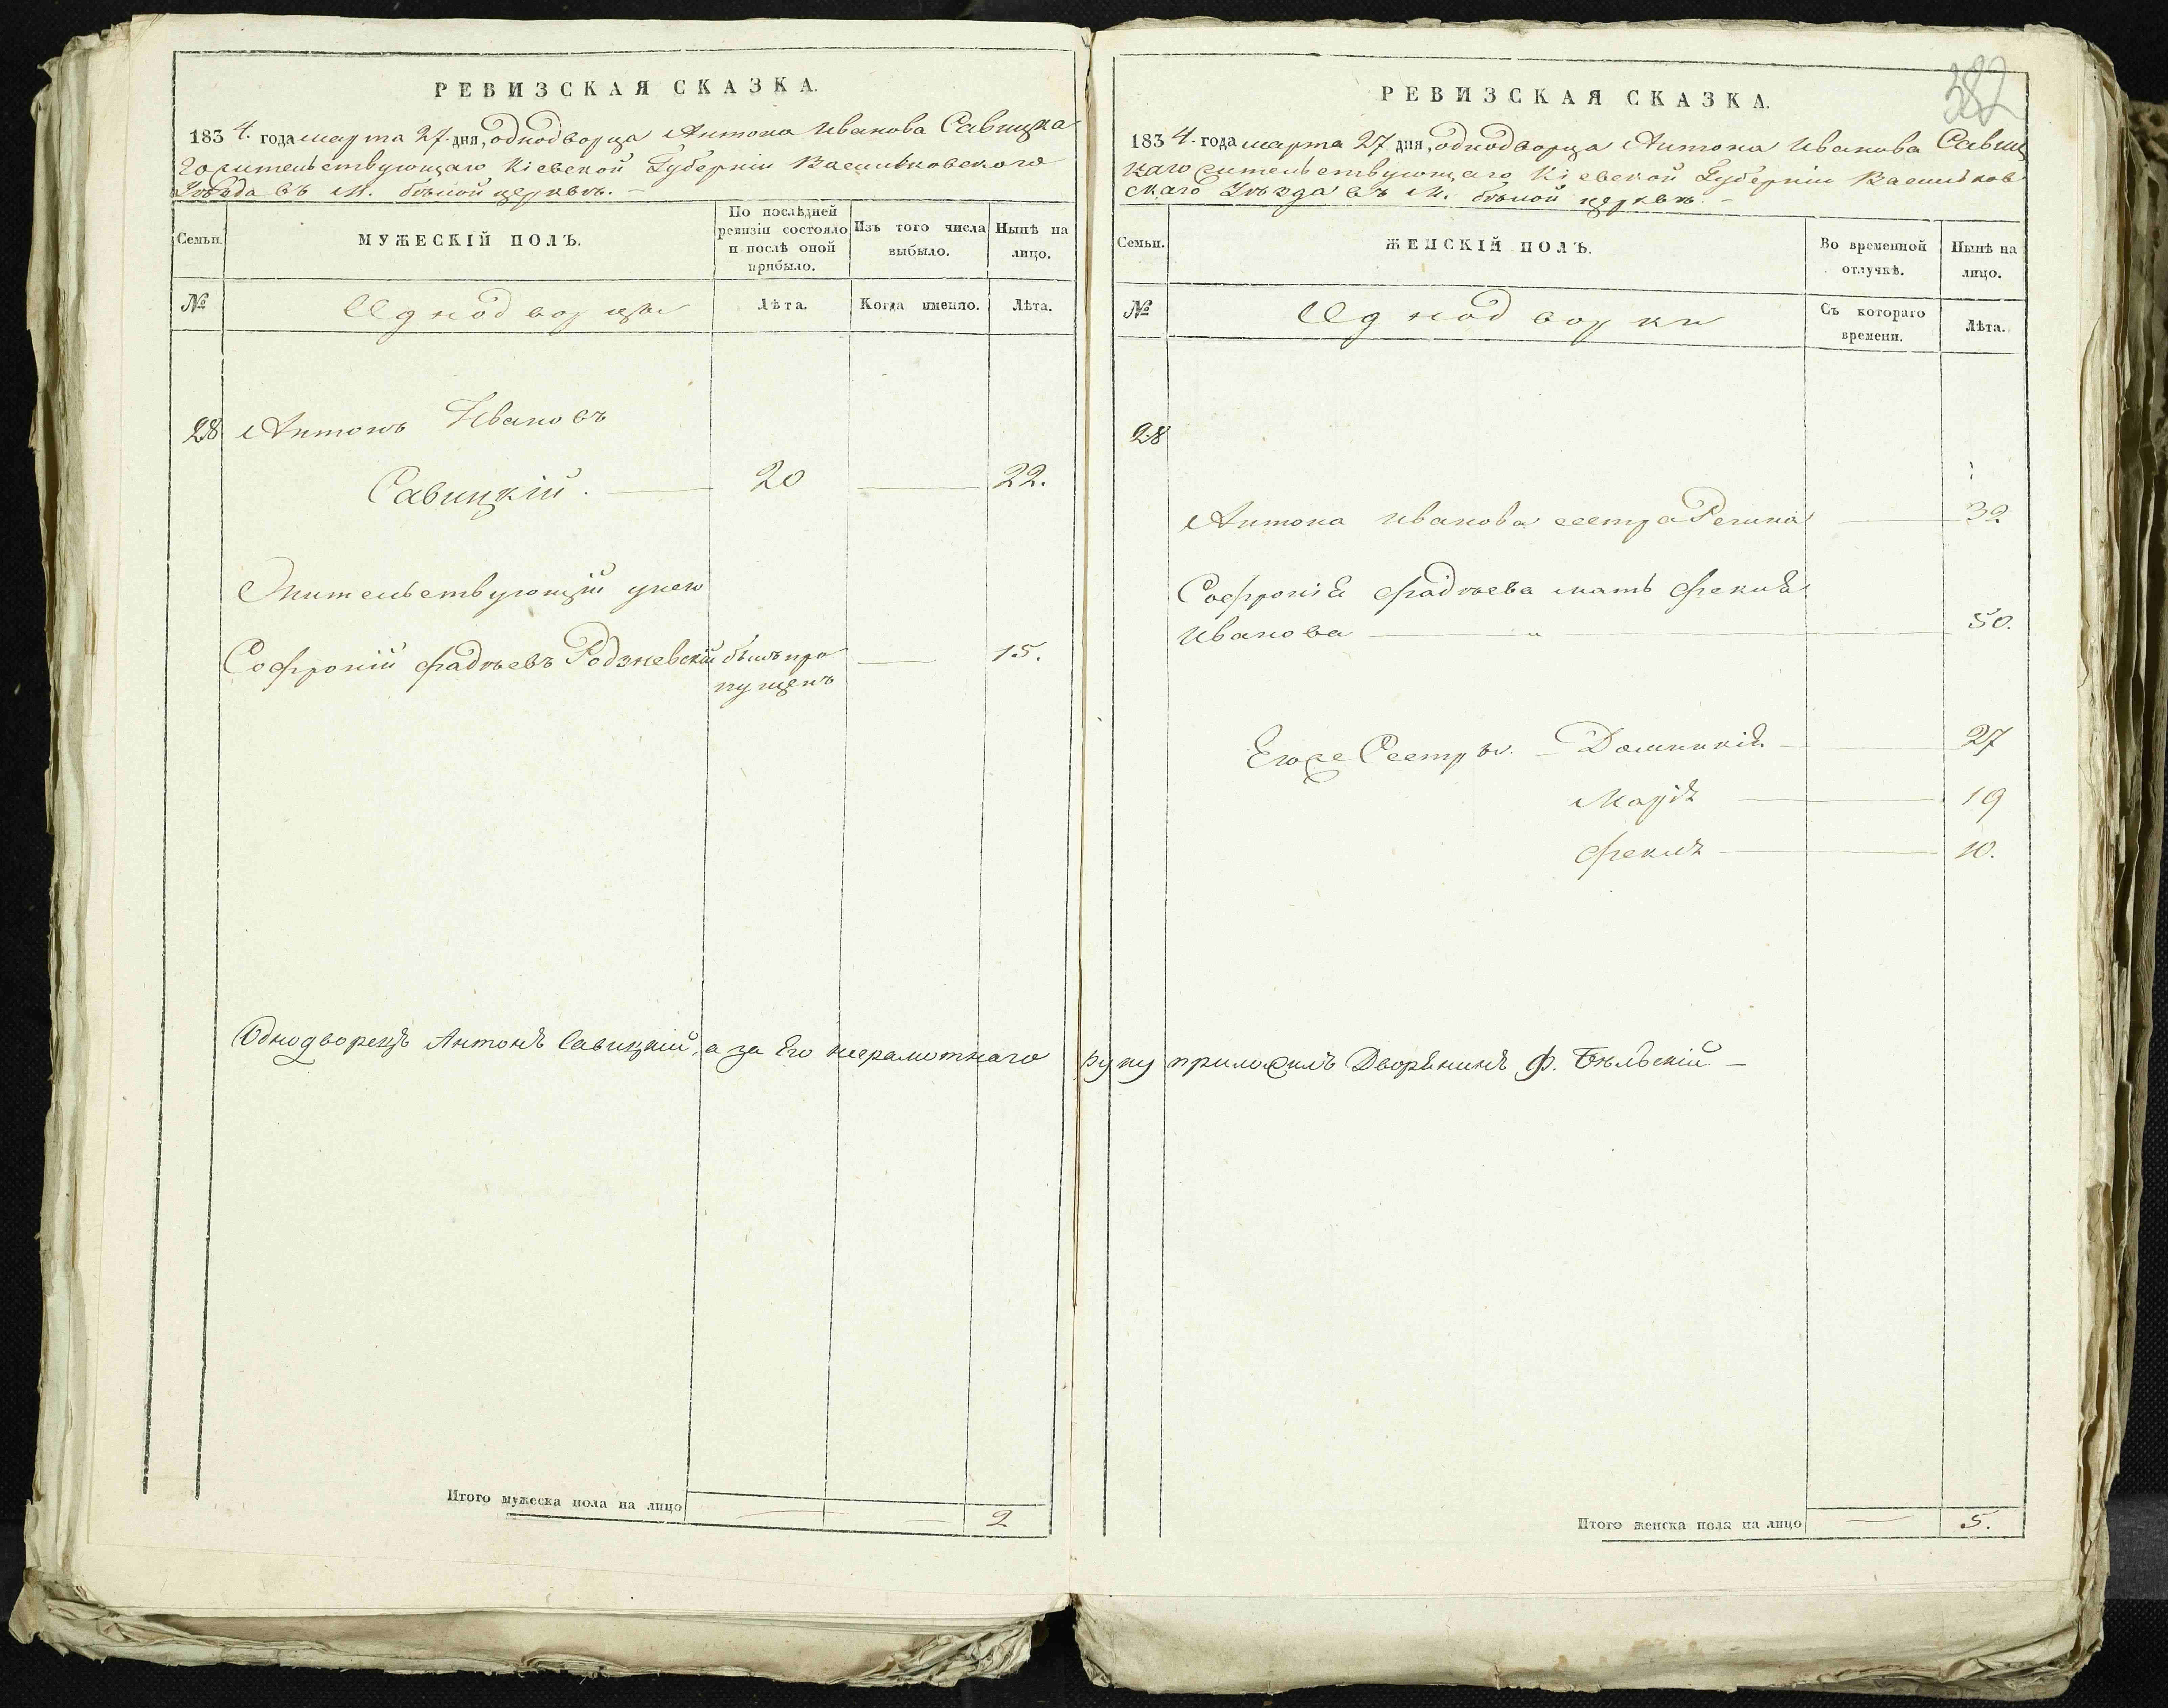 РЕВИЗСКАЯ СКАЗКА.
1834. года марта 27. дня, однодворца Антона Иванова Савицка
го жительствующаго Кіевской Губерніи Васильковского
Уѣзда въ М. бѣлой церквѣ. —
Семьи.
МУЖЕСКІЙ ПОЛЪ.
По послѣдней
ревизіи состояло
и послѣ оной
прибыло.
Изъ того числа
выбыло.
Нынѣ на
лицо.
№
Однодворцы
Лѣта.
Когда именно.
Лѣта.
28 Антонъ Ивановъ
Савицкій. — 20 — 22.
Жительствующій унего
Софроній Фадѣевъ Родзневскій былъ про — 15.
пущенъ
Однодворецъ Антонъ Савицкій, а за Его неграмотнаго
Итого мужеска пола на лицо — — 2
382
РЕВИЗСКАЯ СКАЗКА.
1834. года марта 27 дня, однодворца Антона Иванова Савиц
каго жительствующаго Кіевской Губерніи Васильков
скаго Уѣзда въ М. бѣлой церквѣ. —
Семьи.
ЖЕНСКІЙ ПОЛЪ.
Во временной
отлучкѣ.
Нынѣ на
лицо.
№
Однодворки
Съ котораго
времени.
Лѣта.
28
Антона Иванова сестра Регина — 32
Софронія Фадѣева мать Фекла
Иванова — " — 50.
Егоже Сестры. — Доминикія — 27
Марія — 19
Фекла — 10.
руку приложилъ Дворянинъ Ф. Бѣльскій. —
Итого женска пола на лицо — 5.